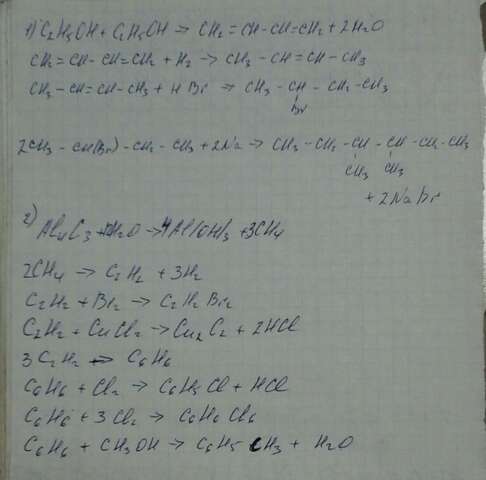 1) C2H5OH + C2H5OH → CH2=CH-CH=CH2 + 2H2O
CH2=CH-CH=CH2 + H2 → CH3-CH=CH-CH3
CH3-CH=CH-CH3 + HBr → CH3-CH-CH2-CH3
Br
2CH3-CH(Br)-CH2-CH3 + 2Na → CH3-CH2-CH-CH-CH2-CH3
CH3 CH3
+ 2NaBr
2) Al4C3 + 12H2O → 4Al(OH)3 + 3CH4
2CH4 → C2H2 + 3H2
C2H2 + Br2 → C2H2Br2
C2H2 + CuCl2 → Cu2C2 + 2HCl
3C2H2 → C6H6
C6H6 + Cl2 → C6H5Cl + HCl
C6H6 + 3Cl2 → C6H6Cl6
C6H6 + CH3OH → C6H5CH3 + H2O